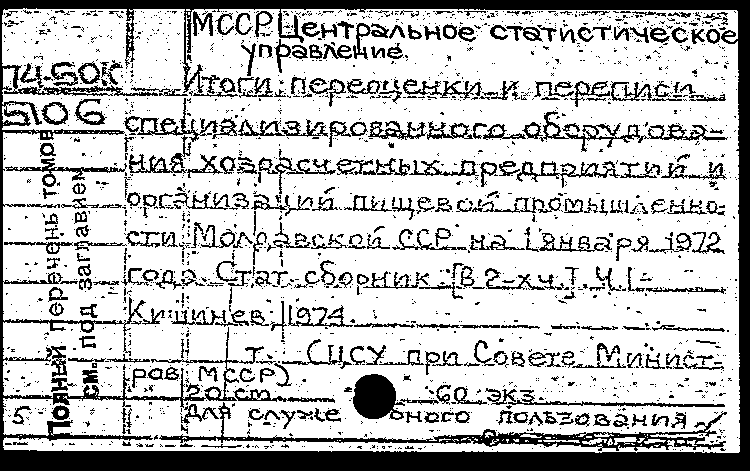 МССР. Центральное статистическое
управление.
74-50К
Итоги переоценки и переписи
5106
специализированного оборудова-
ния хозрасчетных предприятий и
организаций пищевой промышленно-
сти Молдавской ССР на 1 января 1972
года. Стат. сборник. [В 2-х ч.]. Ч. 1-
Кишинев, 1974.
т. (ЦСУ при Совете Минист-
ров МССР)
20 см. 60 экз.
5 Для служебного пользования
Полный перечень томов
см. под заглавием